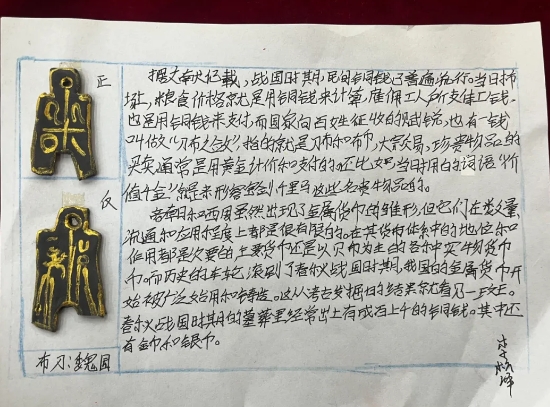 正
反
布刀:魏国
据文献记载,战国时期,民间铜钱已普遍流行。当日市
场上,粮食价格就是用铜钱来计算,雇佣工人所支付工钱
也是用铜钱来支付,而国家向百姓征收的赋税,也有一钱
叫做“刀布之敛”指的就是刀币和布币,大宗交易、珍贵物品的
买卖通常是用黄金计价和支付的。还比如当时用的词语“价
值千金”就是来形容宝剑千里马这些名贵物品的。
商朝和西周虽然出现了金属货币的雏形,但它们在数量
流通和应用程度上都是很有限的。在其货币体系中的地位和
作用都是次要的主要货币还是以贝币为主的各种实物货币
币。而历史的车轮滚到了春秋战国时期,我国的金属货币开
始被广泛始用和铸造。这从考古发掘的结果就看见一斑。
春秋战国时期的墓葬里经常出土有成百上千的铜钱。其中还
有金币和银币。